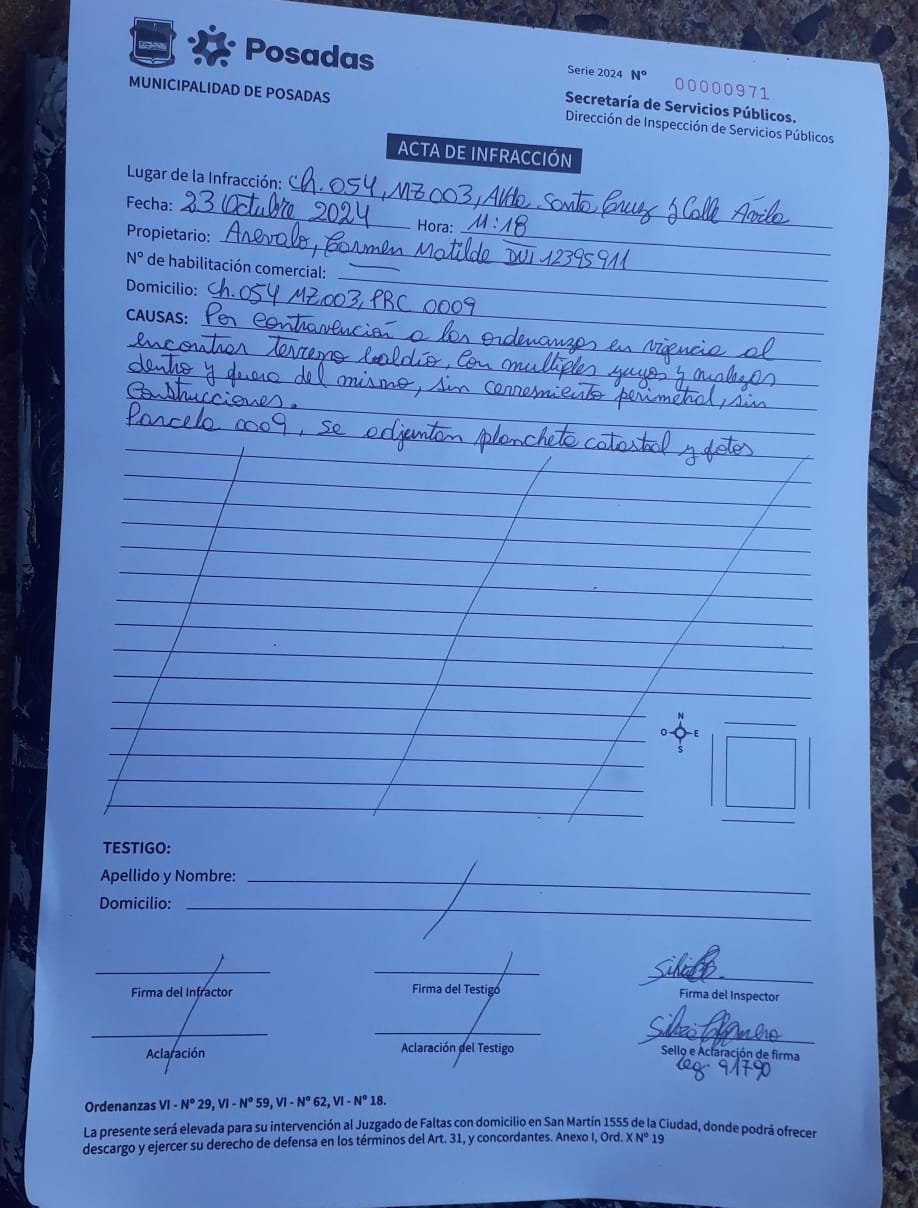 Posadas
MUNICIPALIDAD DE POSADAS
Serie 2024 N° 00000971
Secretaría de Servicios Públicos.
Dirección de Inspección de Servicios Públicos
ACTA DE INFRACCIÓN
Lugar de la Infracción: Ch. 054, MZ 003, Avda Santa Cruz y Calle Ávila
Fecha: 23 Octubre 2024 Hora: 11:18
Propietario: Arevalo, Carmen Matilde DNI 12395911
N° de habilitación comercial:
Domicilio: Ch. 054 MZ.003, PRC 0009
CAUSAS: Por contravención a las ordenanzas en vigencia al
encontrar terreno baldío, con multiples yuyos y malezas
dentro y fuera del mismo, sin cerramiento perimetral, sin
construcciones.
Parcela 0009, se adjuntan plancheta catastral y fotos
N
O E
S
TESTIGO:
Apellido y Nombre:
Domicilio:
Firma del Infractor
Firma del Testigo
Firma del Inspector
Aclaración
Aclaración del Testigo
Sello e Aclaración de firma
Leg. 91790
Ordenanzas VI - N° 29, VI - N° 59, VI - N° 62, VI - N° 18.
La presente será elevada para su intervención al Juzgado de Faltas con domicilio en San Martín 1555 de la Ciudad, donde podrá ofrecer
descargo y ejercer su derecho de defensa en los términos del Art. 31, y concordantes. Anexo I, Ord. X N° 19